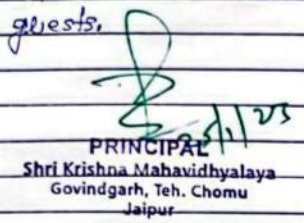 guests.
25/1/23
PRINCIPAL
Shri Krishna Mahavidhyalaya
Govindgarh, Teh. Chomu
Jaipur